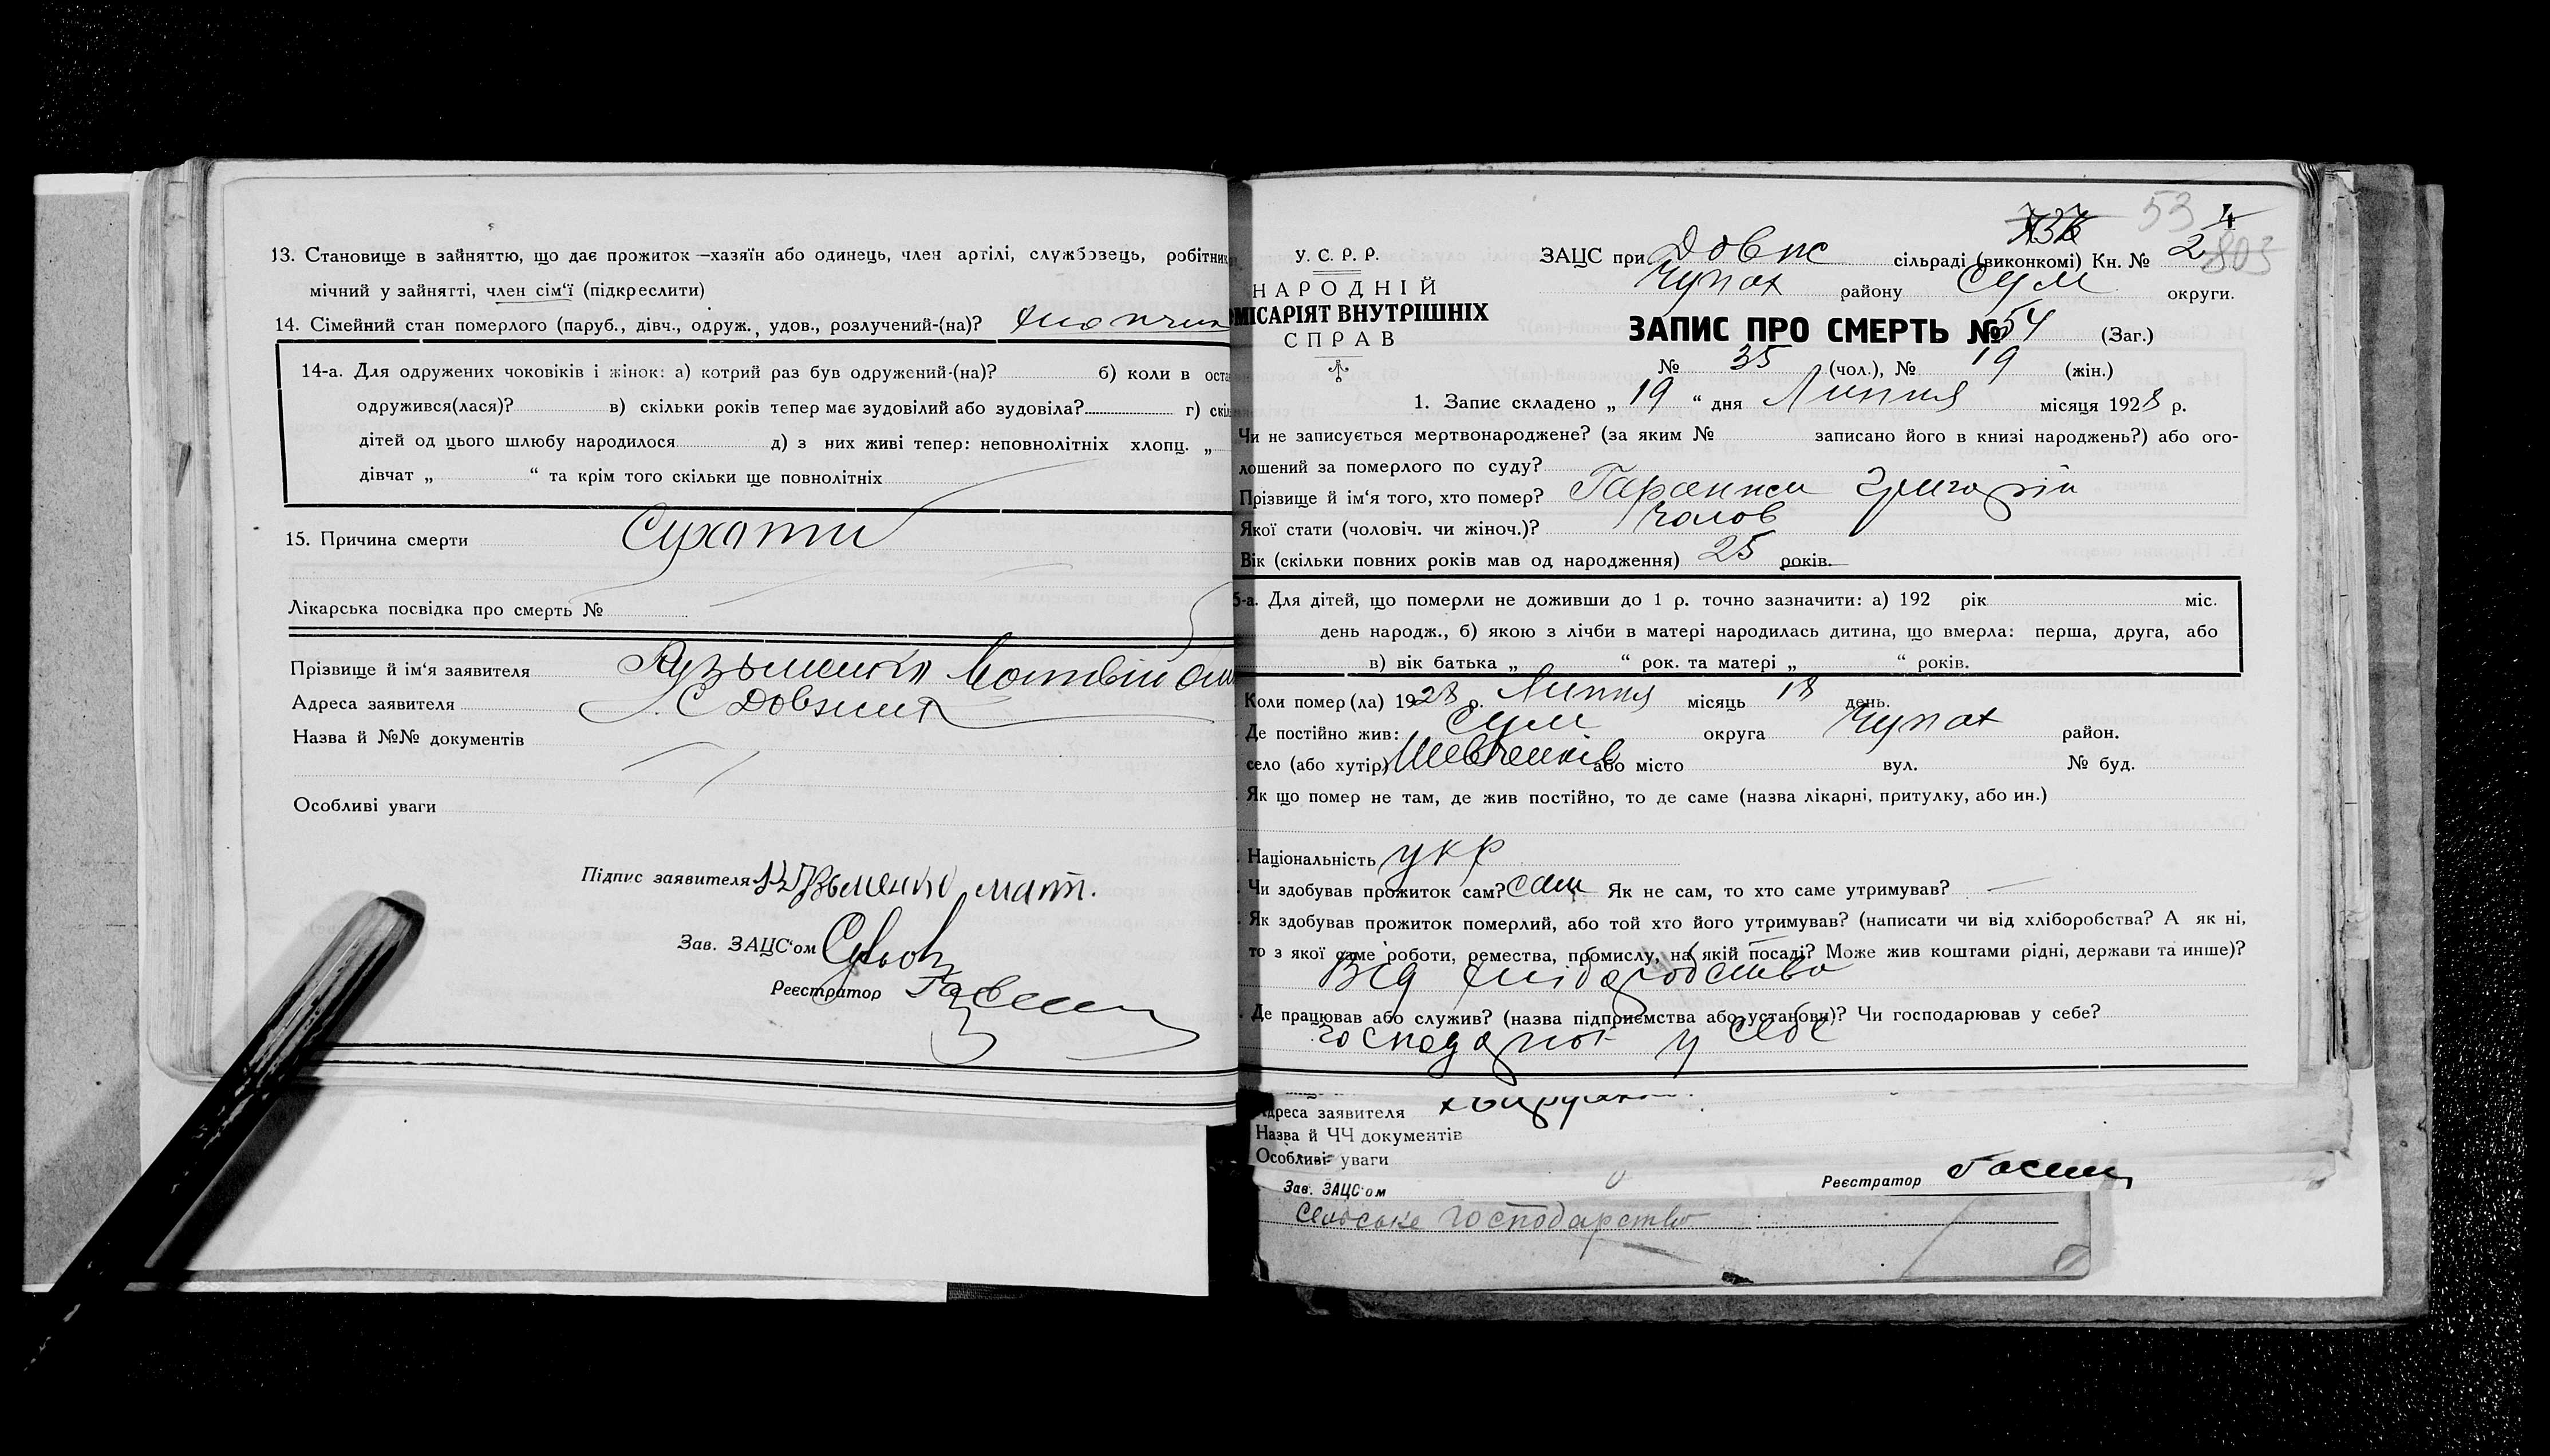 13. Становище в зайняттю, що дає прожиток —хазяїн або одинець, член артілі, службовець, робітник
мічний у зайнятті, член сім‘ї (підкреслити)
14. Сімейний стан померлого (паруб., дівч., одруж., удов., розлучений-(на)? хлопчик
14-а. Для одружених чоковіків і жінок: а) котрий раз був одружений-(на)? б) коли в оста
одружився(лася)? в) скільки років тепер має зудовілий або зудовіла? г) скіль
дітей од цього шлюбу народилося д) з них живі тепер: неповнолітніх хлопц. „
дівчат „ “ та крім того скільки ще повнолітніх
15. Причина смерти Сухоти
Лікарська посвідка про смерть №
Прізвище й ім‘я заявителя Кузьменко Матвій
Адреса заявителя С Довжик
Назва й №№ документів
Особливі уваги
Підпис заявителя Кузьменко мат.
Зав. ЗАЦС‘ом
Реєстратор
53 4
803
У. С. Р. Р.
НАРОДНІЙ
МІСАРІЯТ ВНУТРІШНІХ
СПРАВ
ЗАЦС при Довж сільраді (виконкомі) Кн. № 2
Чупах району Сум округи.
ЗАПИС ПРО СМЕРТЬ № 54 (Заг.)
№ 35 (чол.), № 19 (жін.)
1. Запис складено „ 19 “ дня Липня місяця 1928 р.
Чи не записується мертвонароджене? (за яким № записано його в книзі народжень?) або ого-
лошений за померлого по суду?
Прізвище й ім‘я того, хто помер? Гаранжа Григорій
Якої стати (чоловіч. чи жіноч.)? чолов
Вік (скільки повних років мав од народження) 25 років.
5-а. Для дітей, що померли не доживши до 1 р. точно зазначити: а) 192 рік міс.
день народж., б) якою з лічби в матері народилась дитина, що вмерла: перша, друга, або
в) вік батька „ “ рок. та матері „ “ років.
Коли помер (ла) 1928 р. Липня місяць 18 день.
Де постійно жив: Сум округа Чупах район.
село (або хутір) Шевченків або місто вул. № буд.
Як що помер не там, де жив постійно, то де саме (назва лікарні, притулку, або ин.)
Національність укр
Чи здобував прожиток сам? сам Як не сам, то хто саме утримував? —
Як здобував прожиток померлий, або той хто його утримував? (написати чи від хліборобства? А як ні,
то з якої саме роботи, ремества, промислу, на якій посаді? Може жив коштами рідні, держави та инше)?
Від хліборобства
Де працював або служив? (назва підприємства або установи)? Чи господарював у себе?
господарюв у себе
Адреса заявителя
Назва й ЧЧ документів
Особливі уваги
Зав. ЗАЦС‘ом Реєстратор
Сельське господарство